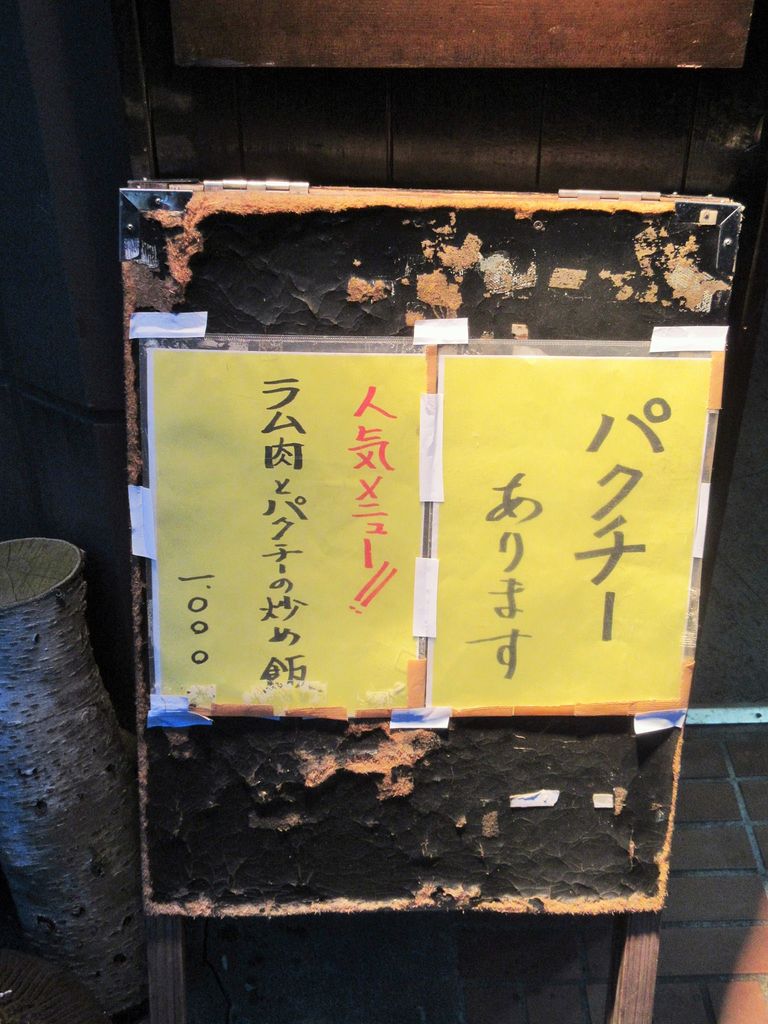 パクチー
あります
人気メニュー!!
ラム肉とパクチーの炒め飯
一.〇〇〇